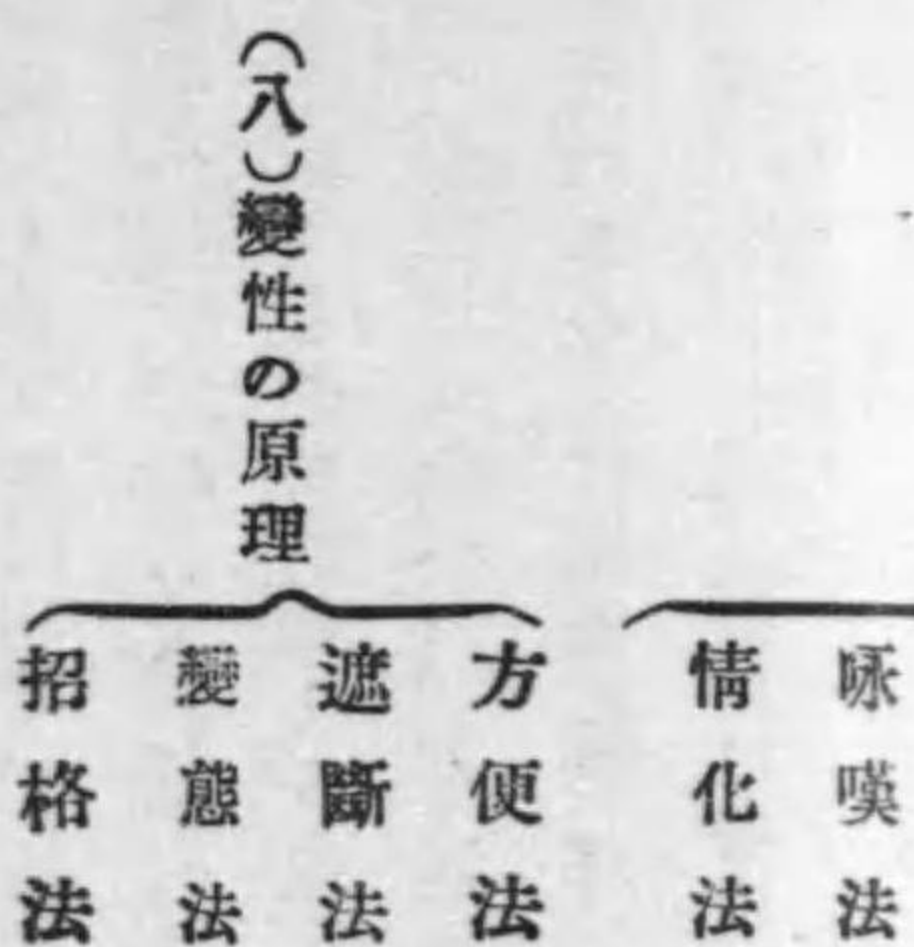 咏嘆法
情化法
（八）變性の原理
方便法
遮斷法
變態法
招格法